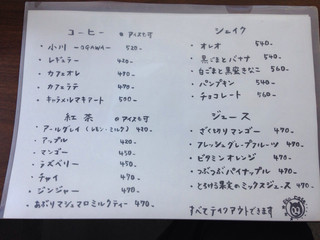 コーヒー ※アイスも可
・小川 -OGAWA- 520-
・レギュラー 420-
・カフェオレ 470-
・カフェラテ 470-
・キャラメルマキアート 500-
紅茶 ※アイスも可
・アールグレイ（レモン・ミルク） 420-
・アップル 420-
・マンゴー 450-
・ラズベリー 450-
・チャイ 470-
・ジンジャー 470-
・あぶりマシュマロミルクティー 470-
シェイク
・オレオ 540-
・黒ごまとバナナ 540-
・白ごまと黒蜜きなこ 560-
・パンプキン 540-
・チョコレート 560-
ジュース
・ざく切りマンゴー 490-
・フレッシュグレープフルーツ 470-
・ビタミンオレンジ 470-
・つぶつぶパイナップル 490-
・とろける果実のミックスジュース 490-
すべてテイクアウトできます